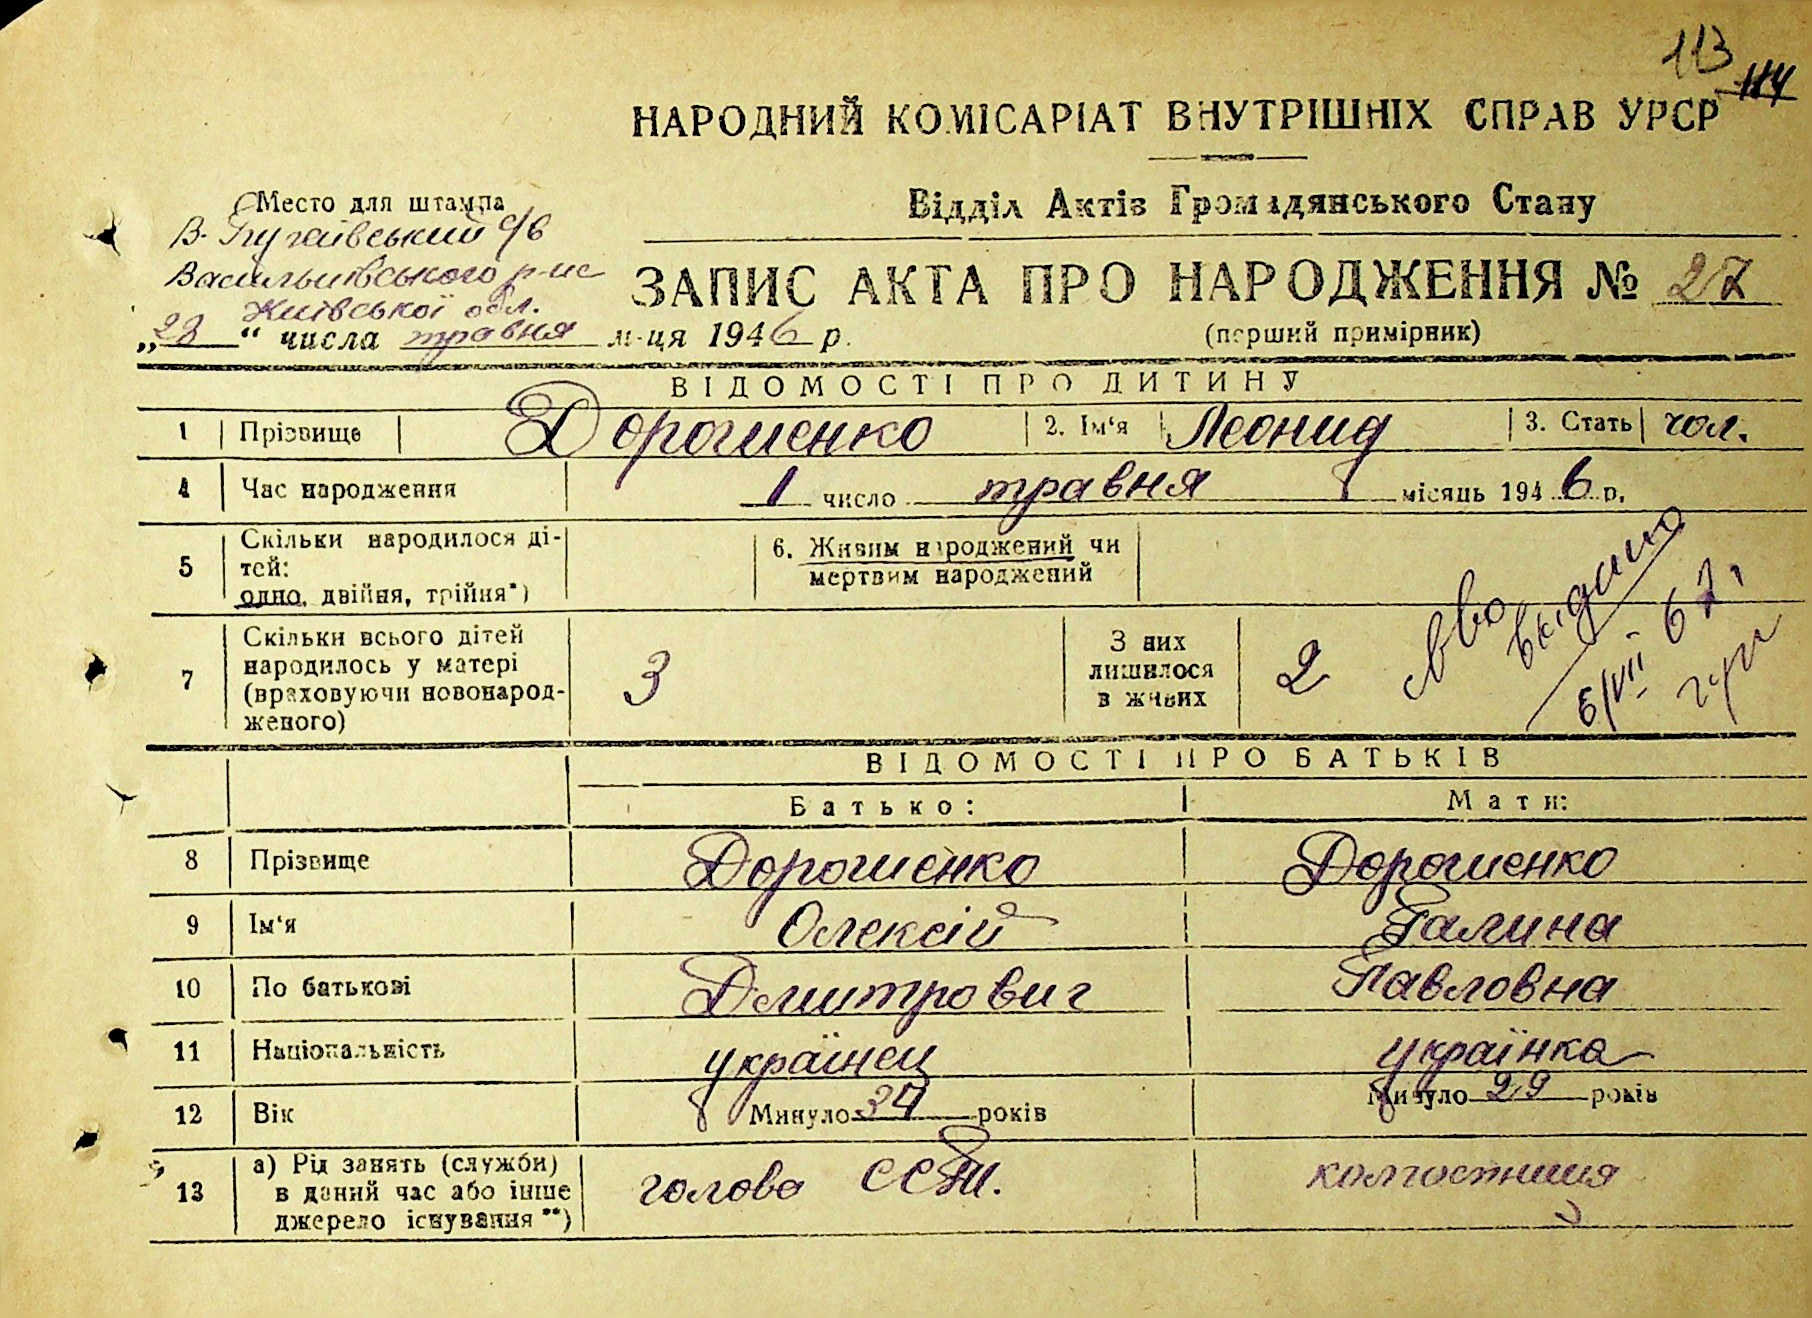 113
114
НАРОДНИЙ КОМІСАРІАТ ВНУТРІШНІХ СПРАВ УРСР
Відділ Актів Громадянського Стану
Место для штампа
В- Пугаївський с/в
Васильківського р-на
Київської обл.
ЗАПИС АКТА ПРО НАРОДЖЕННЯ № 27
(перший примірник)
„23“ числа травня м-ця 1946 р.
ВІДОМОСТІ ПРО ДИТИНУ
1 Прізвище Дорошенко 2. Ім‘я Леонид 3. Стать чол.
4 Час народження 1 число травня місяць 1946 р.
5 Скільки народилося дітей: одно, двійня, трійня*) 6. Живим народжений чи мертвим народжений
7 Скільки всього дітей народилось у матері (враховуючи новонародженого) 3 З них лишилося в живих 2
видано
6/VII 67.
ВІДОМОСТІ ПРО БАТЬКІВ
Батько: Мати:
8 Прізвище Дорошенко Дорошенко
9 Ім‘я Олексій Галина
10 По батькові Дмитрович Павловна
11 Національність українец українка
12 Вік Минуло 34 років Минуло 29 років
13 а) Рід занять (служби) в даний час або інше джерело існування **) голова колгостниця